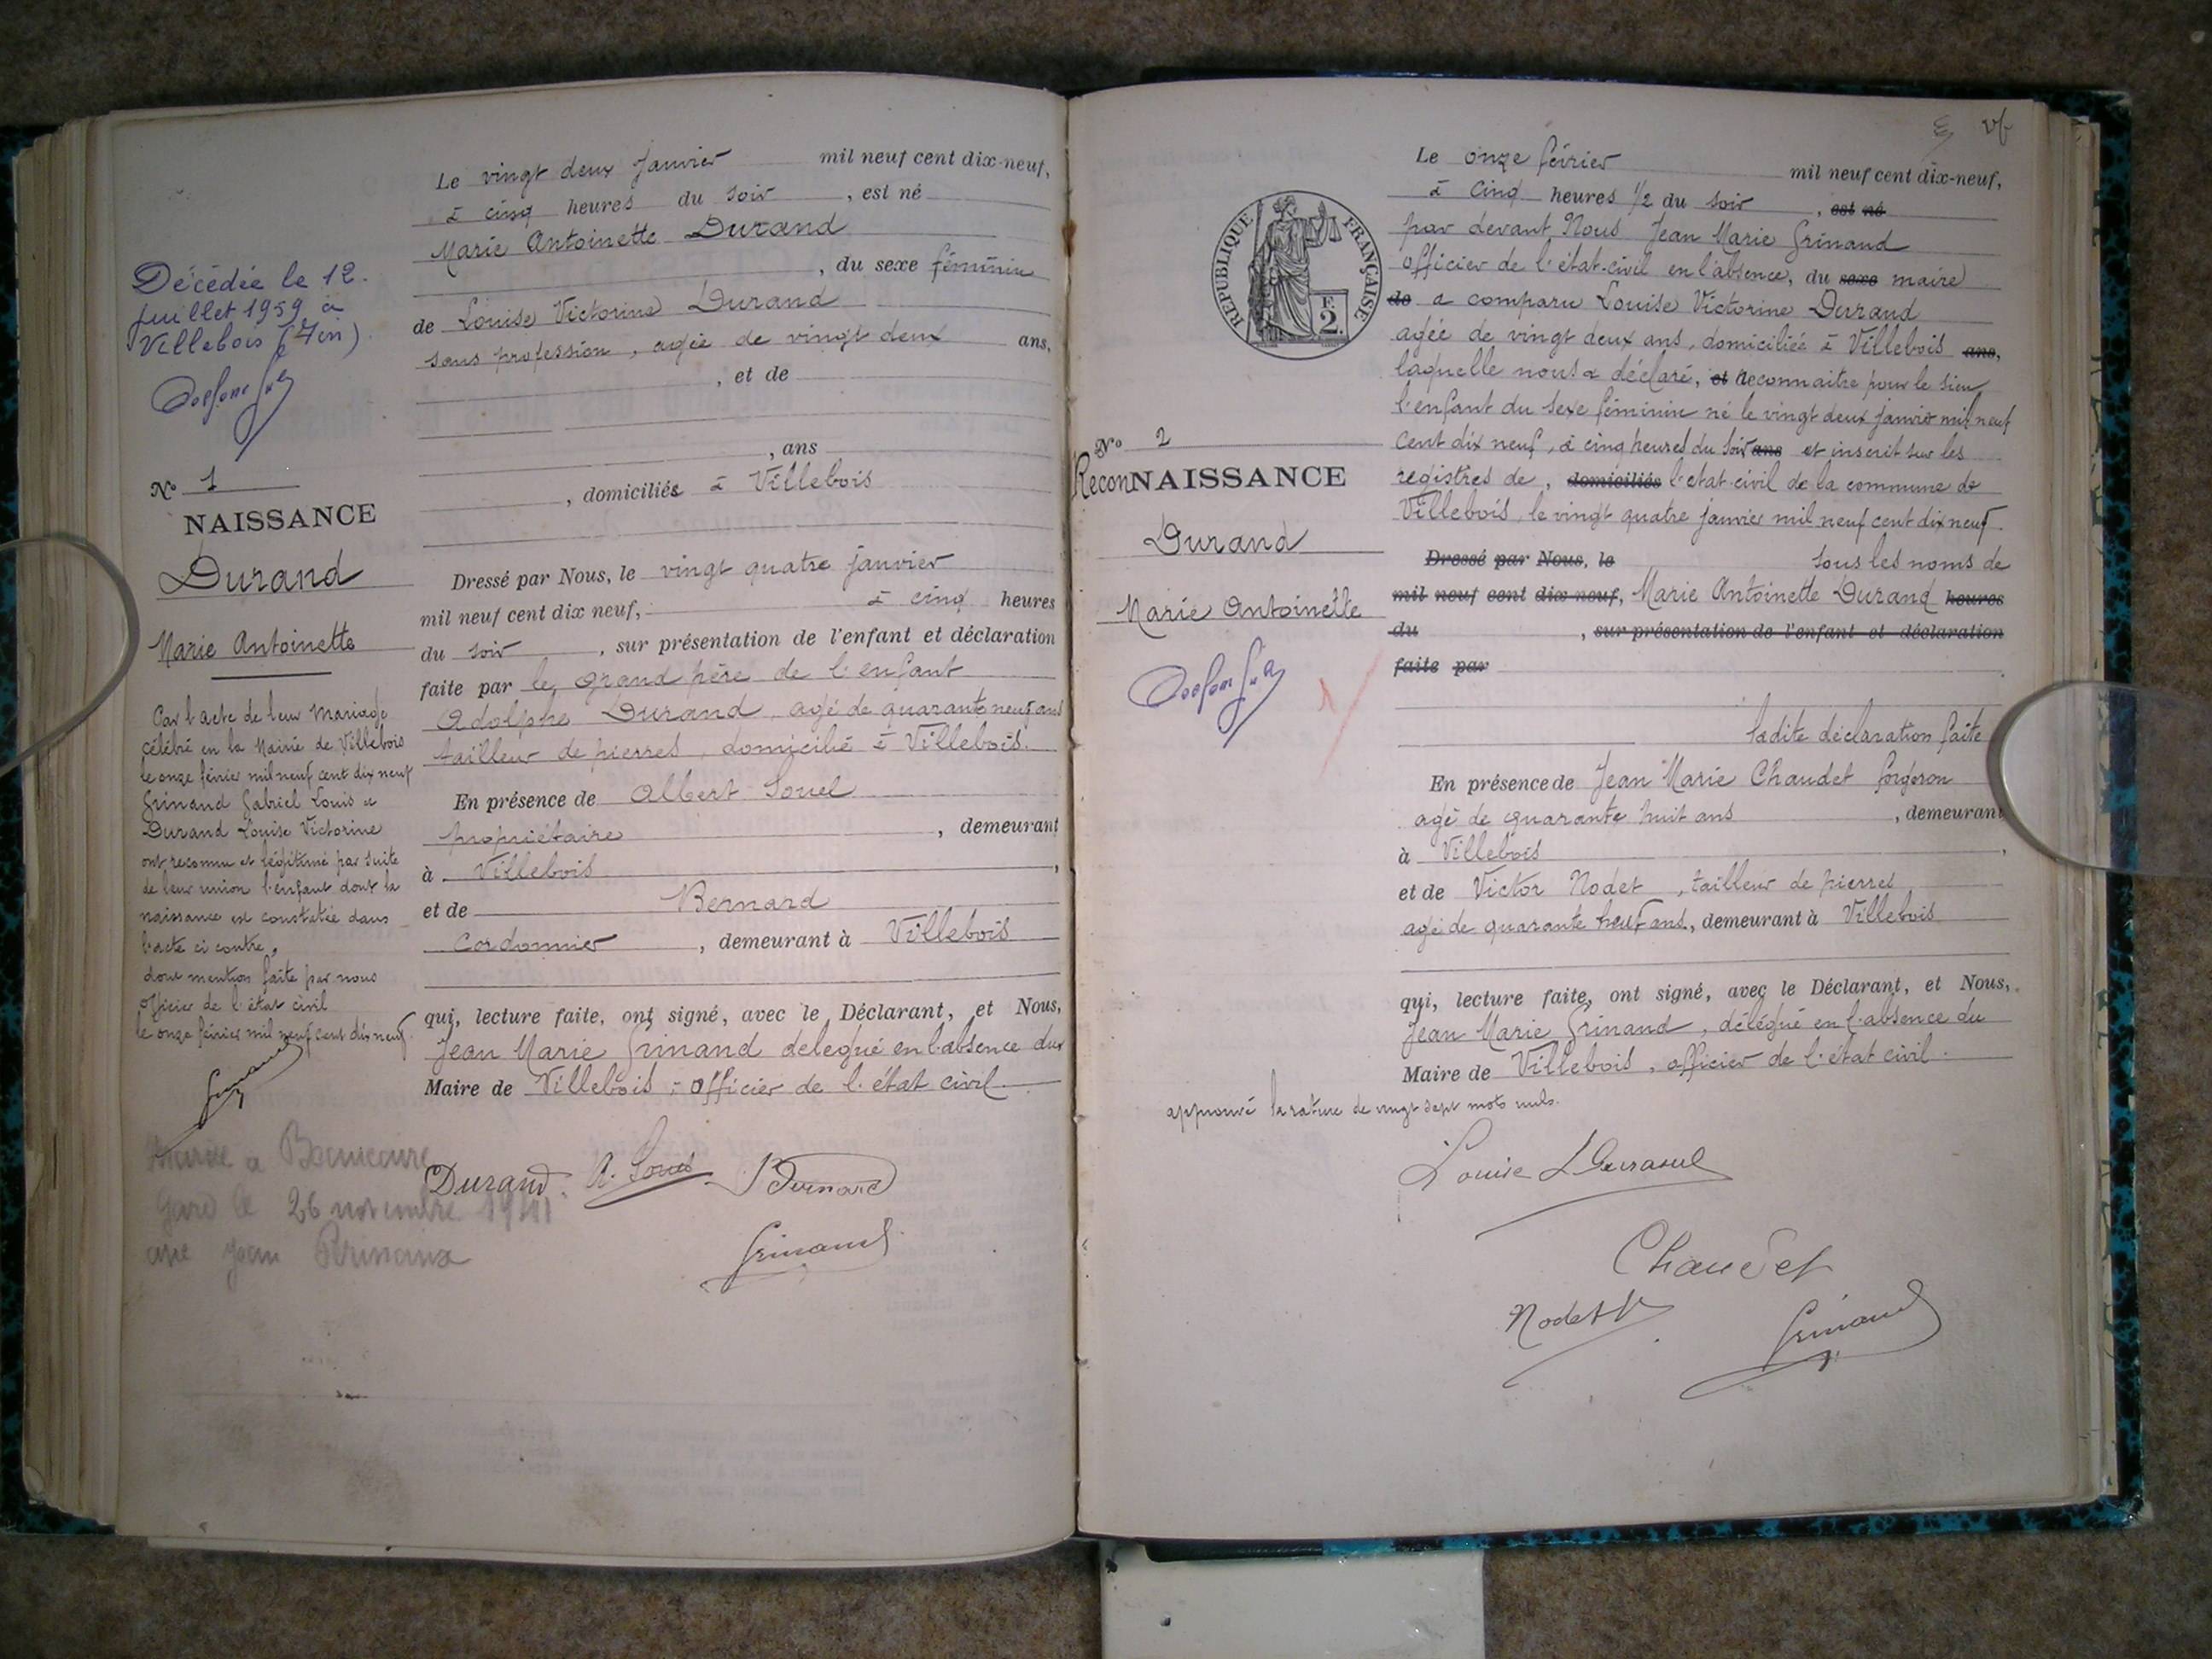 Décédée le 12
juillet 1959 à
Villebois (Ain)
N° 1
NAISSANCE
Durand
Marie Antoinette
Par l'acte de leur mariage
célébré en la Mairie de Villebois
le onze février mil neuf cent dix neuf
Grinand Gabriel Louis et
Durand Louise Victorine
ont reconnu et légitimé par suite
de leur union l'enfant dont la
naissance est constatée dans
l'acte ci contre,
dont mention faite par nous
officier de l'état civil
le onze février mil neuf cent dix neuf
Grinand
Gard le 26 novembre
Jean
Le vingt deux janvier mil neuf cent dix-neuf,
à cinq heures du soir, est né
Marie Antoinette Durand
, du sexe féminin
de Louise Victorine Durand
sans profession, agée de vingt deux ans,
, et de
, ans
, domiciliés à Villebois
Dressé par Nous, le vingt quatre janvier
mil neuf cent dix neuf, à cinq heures
du soir, sur présentation de l'enfant et déclaration
faite par le grand père de l'enfant
Adolphe Durand, agé de quarante neuf ans
tailleur de pierres, domicilié à Villebois.
En présence de Albert Souel
propriétaire, demeurant
à Villebois,
et de Bernard
Cordonnier, demeurant à Villebois
qui, lecture faite, ont signé, avec le Déclarant, et Nous,
Jean Marie Grinand delegué en l'absence du
Maire de Villebois, officier de l'état civil
Durand A. Souel Bernard
Grinand
RÉPUBLIQUE FRANÇAISE
F.
2.
N° 2
ReconNAISSANCE
Durand
Marie Antoinette
Le onze février mil neuf cent dix-neuf,
à cinq heures 1/2 du soir, est né
par devant Nous Jean Marie Grinand
officier de l'état-civil en l'absence, du sexe maire
de a comparu Louise Victorine Durand
agée de vingt deux ans, domiciliée à Villebois ans,
laquelle nous a déclaré, et reconnaitre pour le sien
l'enfant du sexe féminin né le vingt deux janvier mil neuf
cent dix neuf, à cinq heures du soir ans et inscrit sur les
registres de, domiciliés l'état-civil de la commune de
Villebois, le vingt quatre janvier mil neuf cent dix neuf.
Dressé par Nous, le sous les noms de
mil neuf cent dix-neuf, Marie Antoinette Durand heures
du, sur présentation de l'enfant et déclaration
faite par
ladite déclaration faite
En présence de Jean Marie Chaudet forgeron
agé de quarante huit ans, demeurant
à Villebois,
et de Victor Nodet, tailleur de pierres
agé de quarante neuf ans, demeurant à Villebois
qui, lecture faite, ont signé, avec le Déclarant, et Nous,
Jean Marie Grinand, délégué en l'absence du
Maire de Villebois, officier de l'état civil.
approuvé la rature de vingt sept mots nuls.
Louise Durand
Chaudet
Nodet V
Grinand